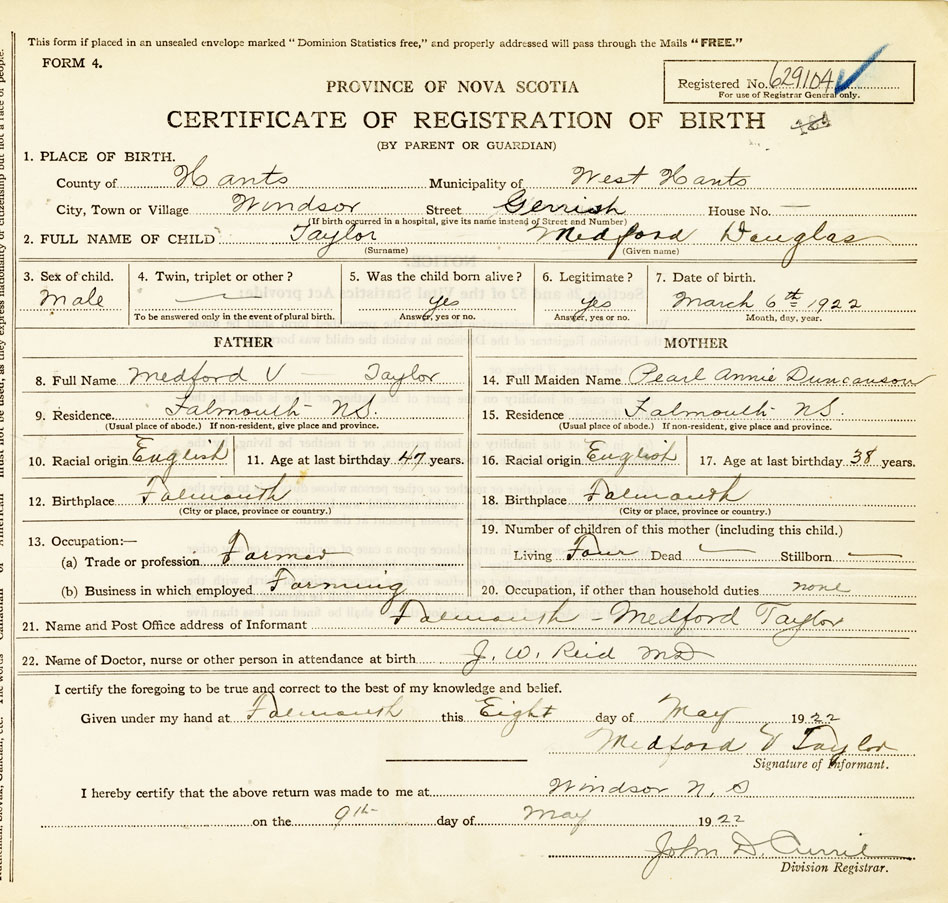 This form if placed in an unsealed envelope marked “Dominion Statistics free,” and properly addressed will pass through the Mails “FREE.”
FORM 4.
Registered No. 629104
For use of Registrar General only.
PROVINCE OF NOVA SCOTIA
CERTIFICATE OF REGISTRATION OF BIRTH
(BY PARENT OR GUARDIAN)
1. PLACE OF BIRTH.
County of Hants Municipality of West Hants
City, Town or Village Windsor Street Gerrish House No. —
(If birth occurred in a hospital, give its name instead of Street and Number)
2. FULL NAME OF CHILD Taylor Medford Douglas
(Surname) (Given name)
3. Sex of child. 4. Twin, triplet or other? 5. Was the child born alive? 6. Legitimate? 7. Date of birth.
Male — yes yes March 6th 1922
To be answered only in the event of plural birth. Answer, yes or no. Answer, yes or no. Month, day, year.
FATHER
8. Full Name Medford V — Taylor
9. Residence. Falmouth - NS.
(Usual place of abode.) If non-resident, give place and province.
10. Racial origin English 11. Age at last birthday 47 years.
12. Birthplace Falmouth
(City or place, province or country.)
13. Occupation:—
(a) Trade or profession Farmer
(b) Business in which employed Farming
MOTHER
14. Full Maiden Name Pearl Annie Duncanson
15. Residence Falmouth - NS.
(Usual place of abode.) If non-resident, give place and province.
16. Racial origin English 17. Age at last birthday 38 years.
18. Birthplace Falmouth
(City or place, province or country.)
19. Number of children of this mother (including this child.)
Living Four Dead — Stillborn —
20. Occupation, if other than household duties none
21. Name and Post Office address of Informant Falmouth - Medford Taylor
22. Name of Doctor, nurse or other person in attendance at birth J. W. Reid MD
I certify the foregoing to be true and correct to the best of my knowledge and belief.
Given under my hand at Falmouth this Eight day of May 1922
Medford V Taylor
Signature of Informant.
I hereby certify that the above return was made to me at Windsor N. S
on the 9th day of May 1922
John D.
Division Registrar.